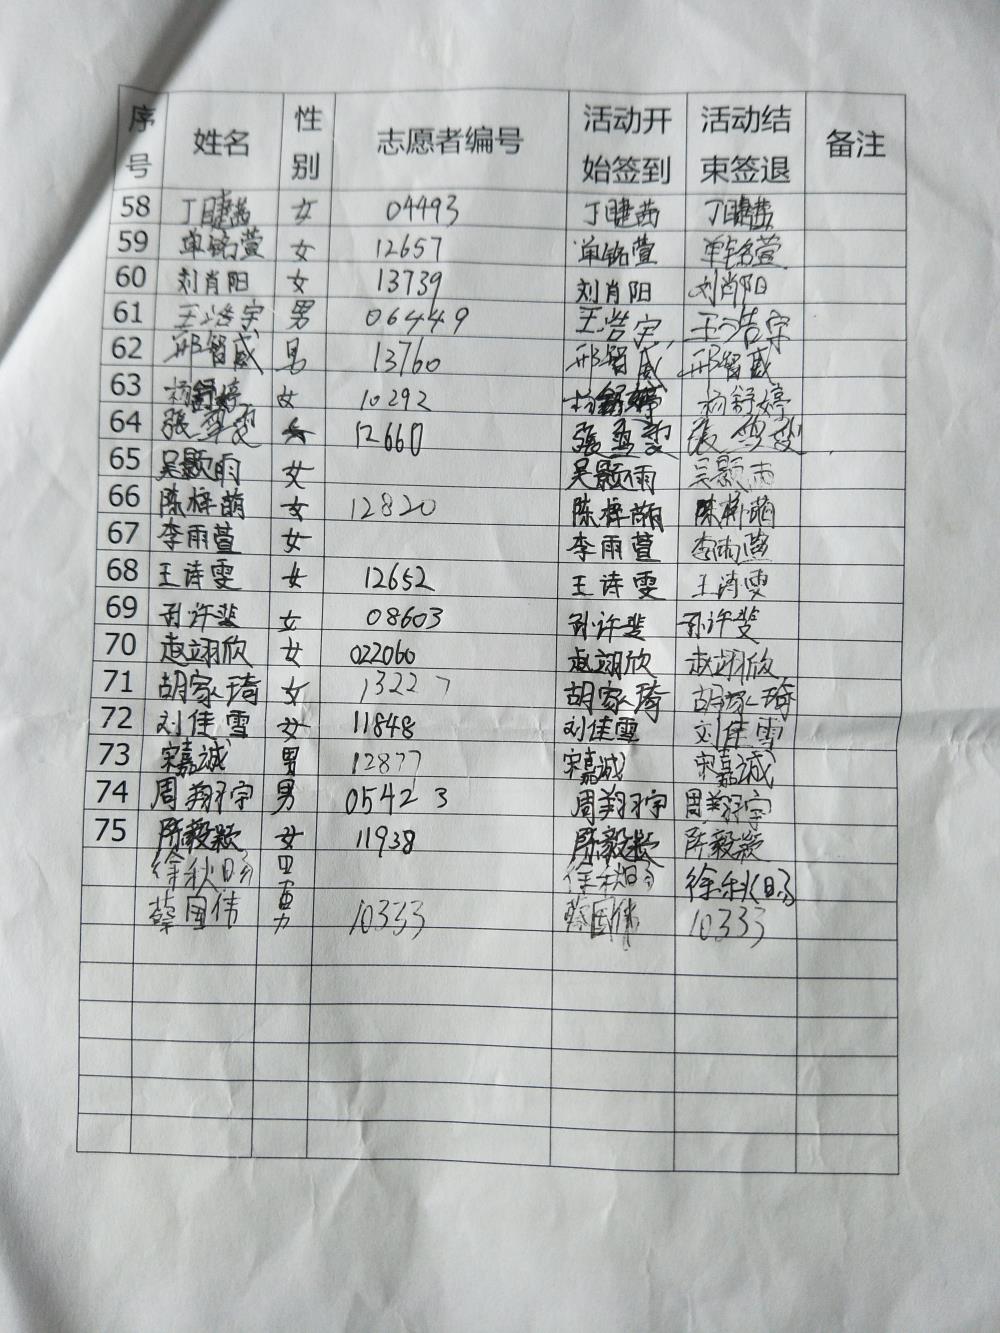 序号 姓名 性别 志愿者编号 活动开始签到 活动结束签退 备注
58 丁睫茜 女 04493 丁睫茜 丁睫茜
59 单铭萱 女 12657 单铭萱 单铭萱
60 刘肖阳 女 13739 刘肖阳 刘肖阳
61 王浩宇 男 06449 王浩宇 王浩宇
62 邢智威 男 13760 邢智威 邢智威
63 杨舒婷 女 10292 杨舒婷 杨舒婷
64 張 女 12660 張 張
65 吴颢雨 女 吴颢雨 吴颢雨
66 陈梓萌 女 12820 陈梓萌 陈梓萌
67 李雨萱 女 李雨萱 李雨萱
68 王诗雯 女 12652 王诗雯 王诗雯
69 孙许斐 女 08603 孙许斐 孙许斐
70 赵翊欣 女 022060 赵翊欣 赵翊欣
71 胡家琦 女 13227 胡家琦 胡家琦
72 刘佳雪 女 11848 刘佳雪 刘佳雪
73 宋嘉诚 男 12877 宋嘉诚 宋嘉诚
74 周翔宇 男 05423 周翔宇 周翔宇
75 陈毅颖 女 11938 陈毅颖 陈毅颖
徐秋旸 男 徐秋旸 徐秋旸
蔡国伟 男 10333 蔡国伟 10333